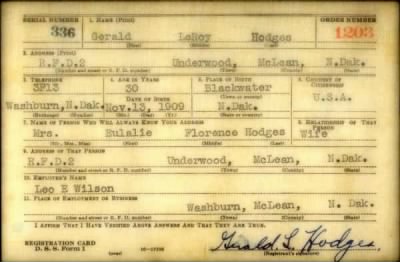 SERIAL NUMBER 1. NAME (Print) ORDER NUMBER
336 Gerald LeRoy Hodges 1203
(First) (Middle) (Last)
2. ADDRESS (Print)
R.F.D.2 Underwood, McLean, N.Dak.
(Number and street or R. F. D. number) (Town) (County) (State)
3. TELEPHONE 4. AGE IN YEARS 5. PLACE OF BIRTH 6. COUNTRY OF CITIZENSHIP
3F13 30 Blackwater
DATE OF BIRTH (Town or county) U.S.A.
Washburn,N.Dak. Nov.13, 1909 N.Dak.
(Exchange) (Number) (Mo.) (Day) (Yr.) (State or country)
7. NAME OF PERSON WHO WILL ALWAYS KNOW YOUR ADDRESS 8. RELATIONSHIP OF THAT PERSON
Mrs. Eulalie Florence Hodges Wife
(Mr., Mrs., Miss) (First) (Middle) (Last)
9. ADDRESS OF THAT PERSON
R.F.D.2 Underwood, McLean, N. Dak.
(Number and street or R. F. D. number) (Town) (County) (State)
10. EMPLOYER'S NAME
Leo E Wilson
11. PLACE OF EMPLOYMENT OR BUSINESS
Washburn, McLean, N. Dak.
(Number and street or R. F. D. number) (Town) (County) (State)
I AFFIRM THAT I HAVE VERIFIED ABOVE ANSWERS AND THAT THEY ARE TRUE.
REGISTRATION CARD
D. S. S. Form 1 Gerald L. Hodges
(Registrant's signature)